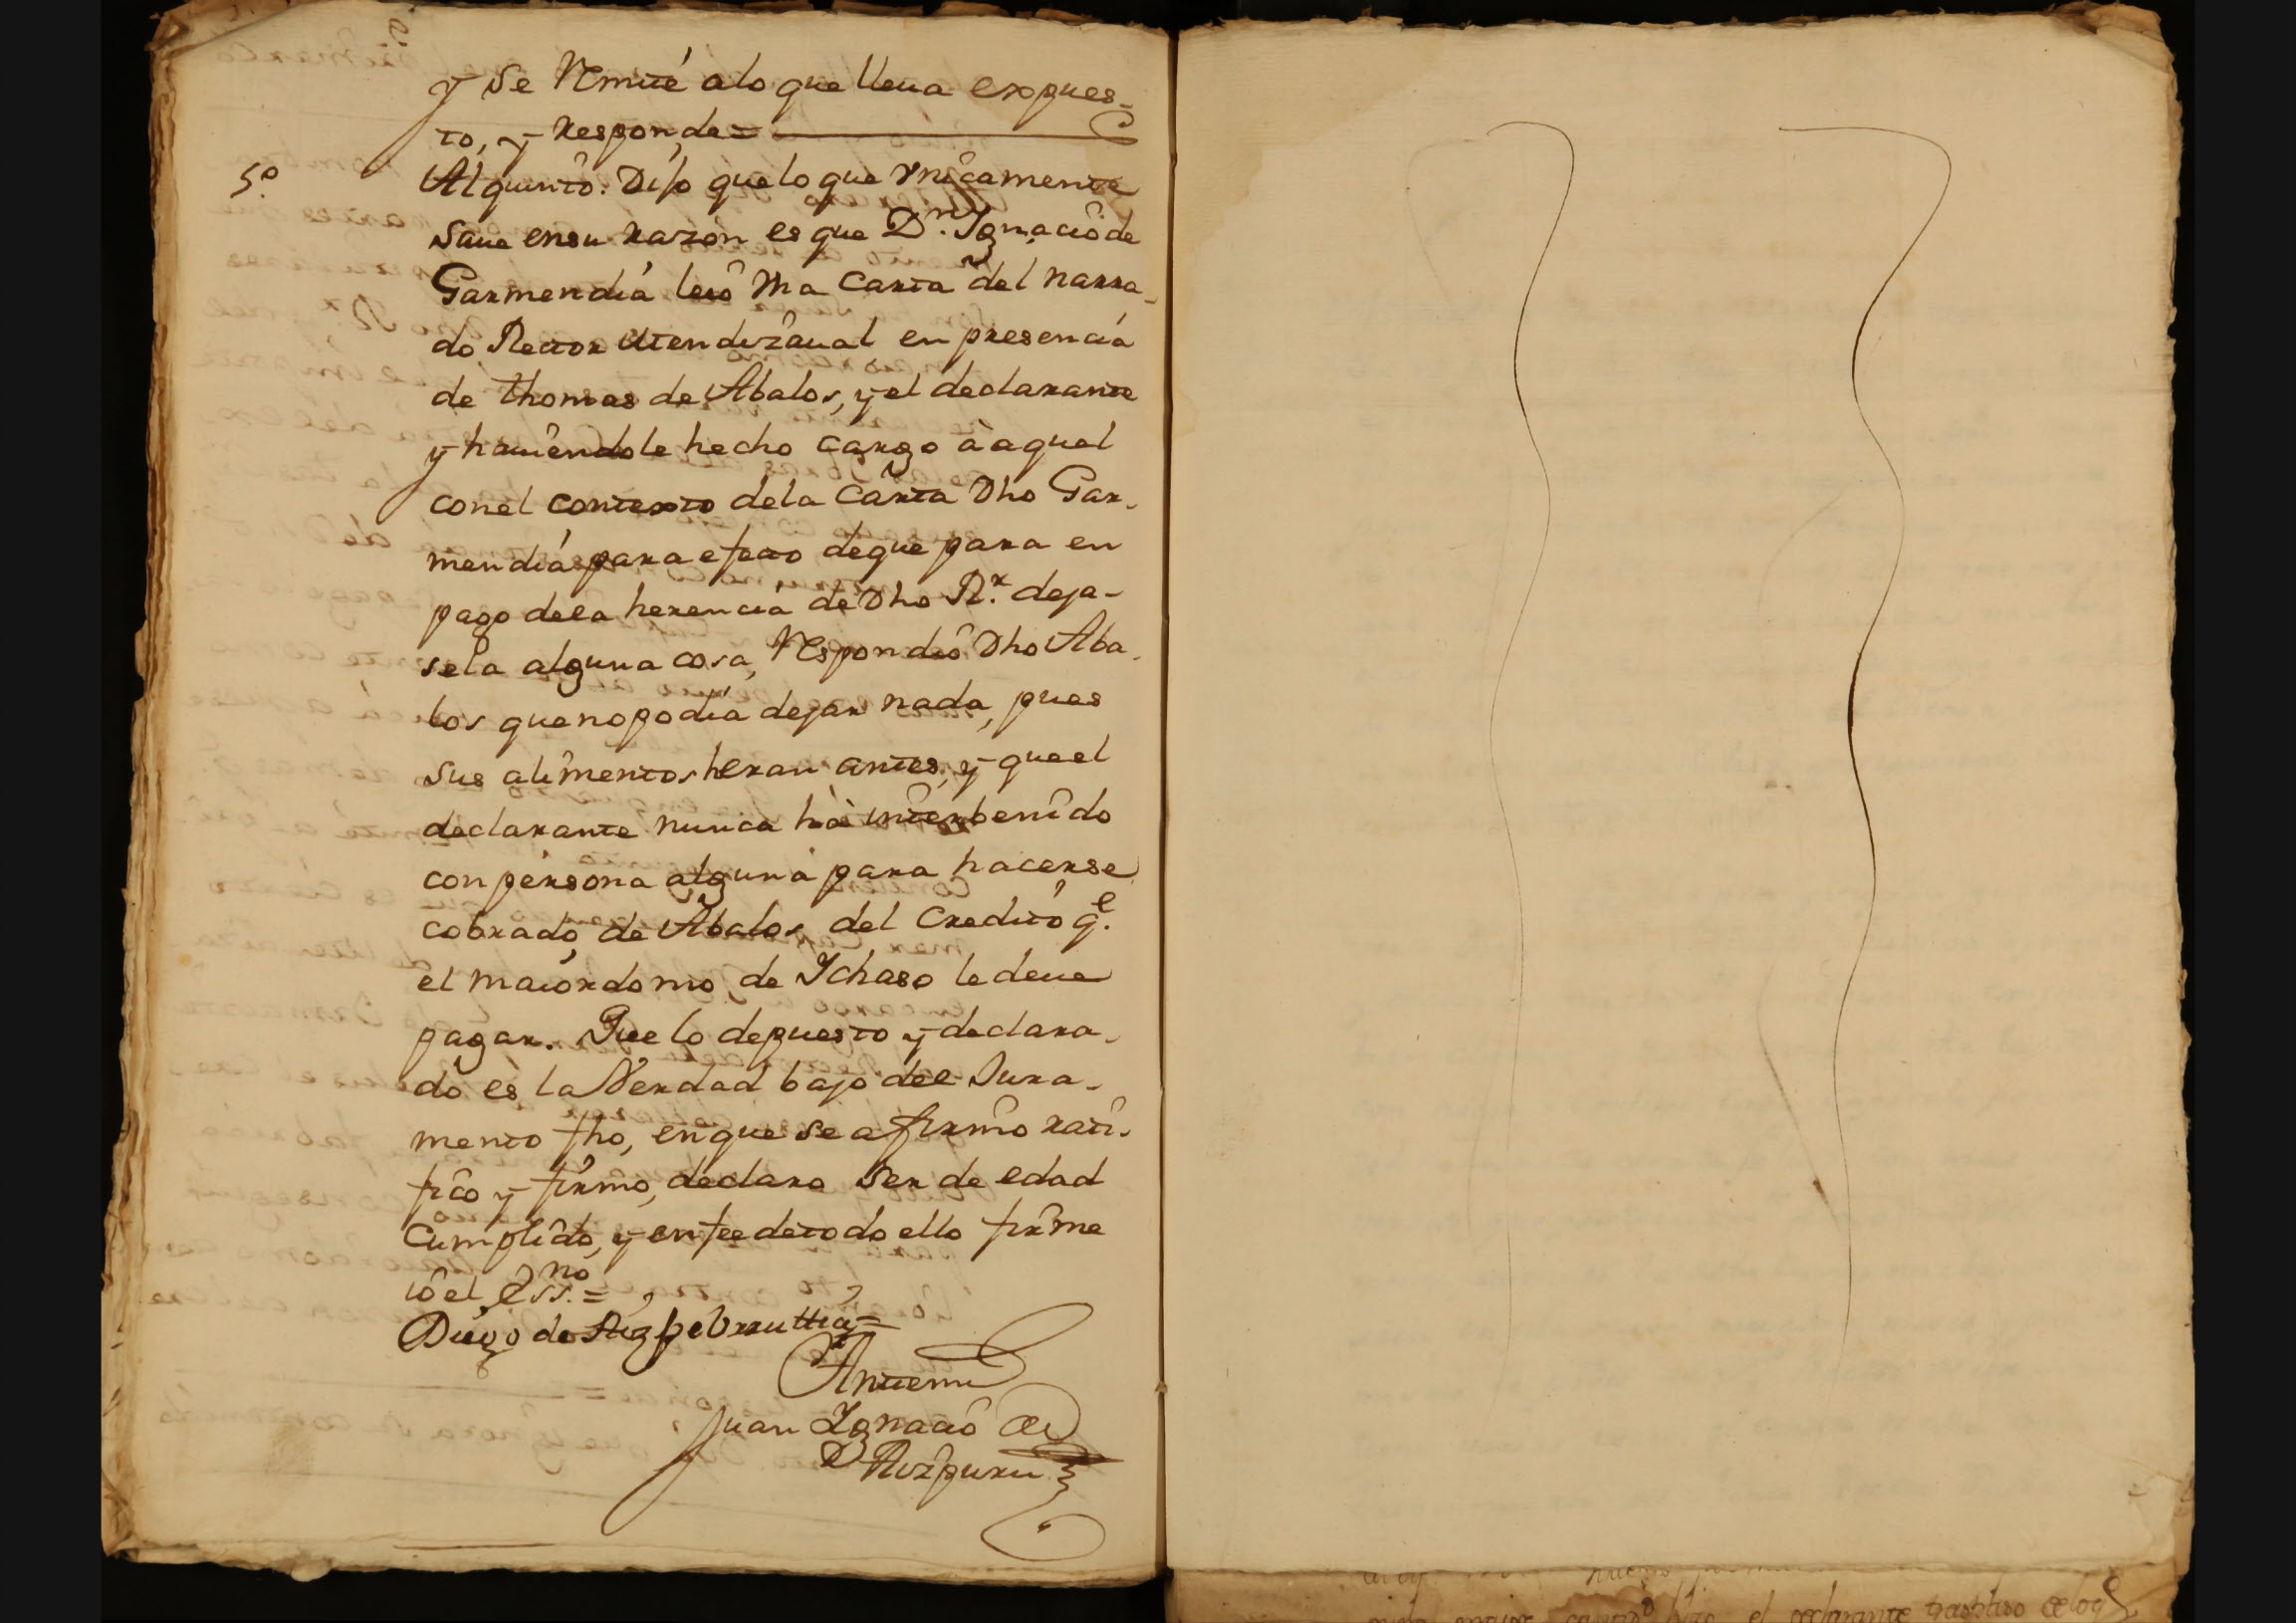 y se Remite alo que lleua expues-
to, y Responde =
5.º Al quinto: Dijo que lo que vnicamente
saue en su razon es que D.n Ygnacio de
Garmendia leio vna Carta del narra-
do Rector Atendizaual en presencia
de thomas de Abalos, y el declarante
y hauiendole hecho cargo à aquel
con el contexto dela Carta Dho Gar-
mendia para efecto de que para en
pago dela herencia de Dho R.r deja-
sela alguna cosa, Respondiò Dho Aba-
los que no podia dejar nada, pues
sus alimentos heran antes, y que el
declarante nunca hà interbenido
con persona alguna para hacerse
cobrado de Abalos del Credito q.e
el maiordomo de Ychaso le deue
pagar. Que lo depuesto y declara-
do es la Verdad bajo del Jura-
mento fho, en que se afirmo rati-
fico y firmo, declaro ser de edad
Cumplido, y en fee de todo ello firme
io el Ess.no =
Diego de Aizpe Vrruttia =
Antemi
Juan Ygnacio de
Aizpuru
el declarante